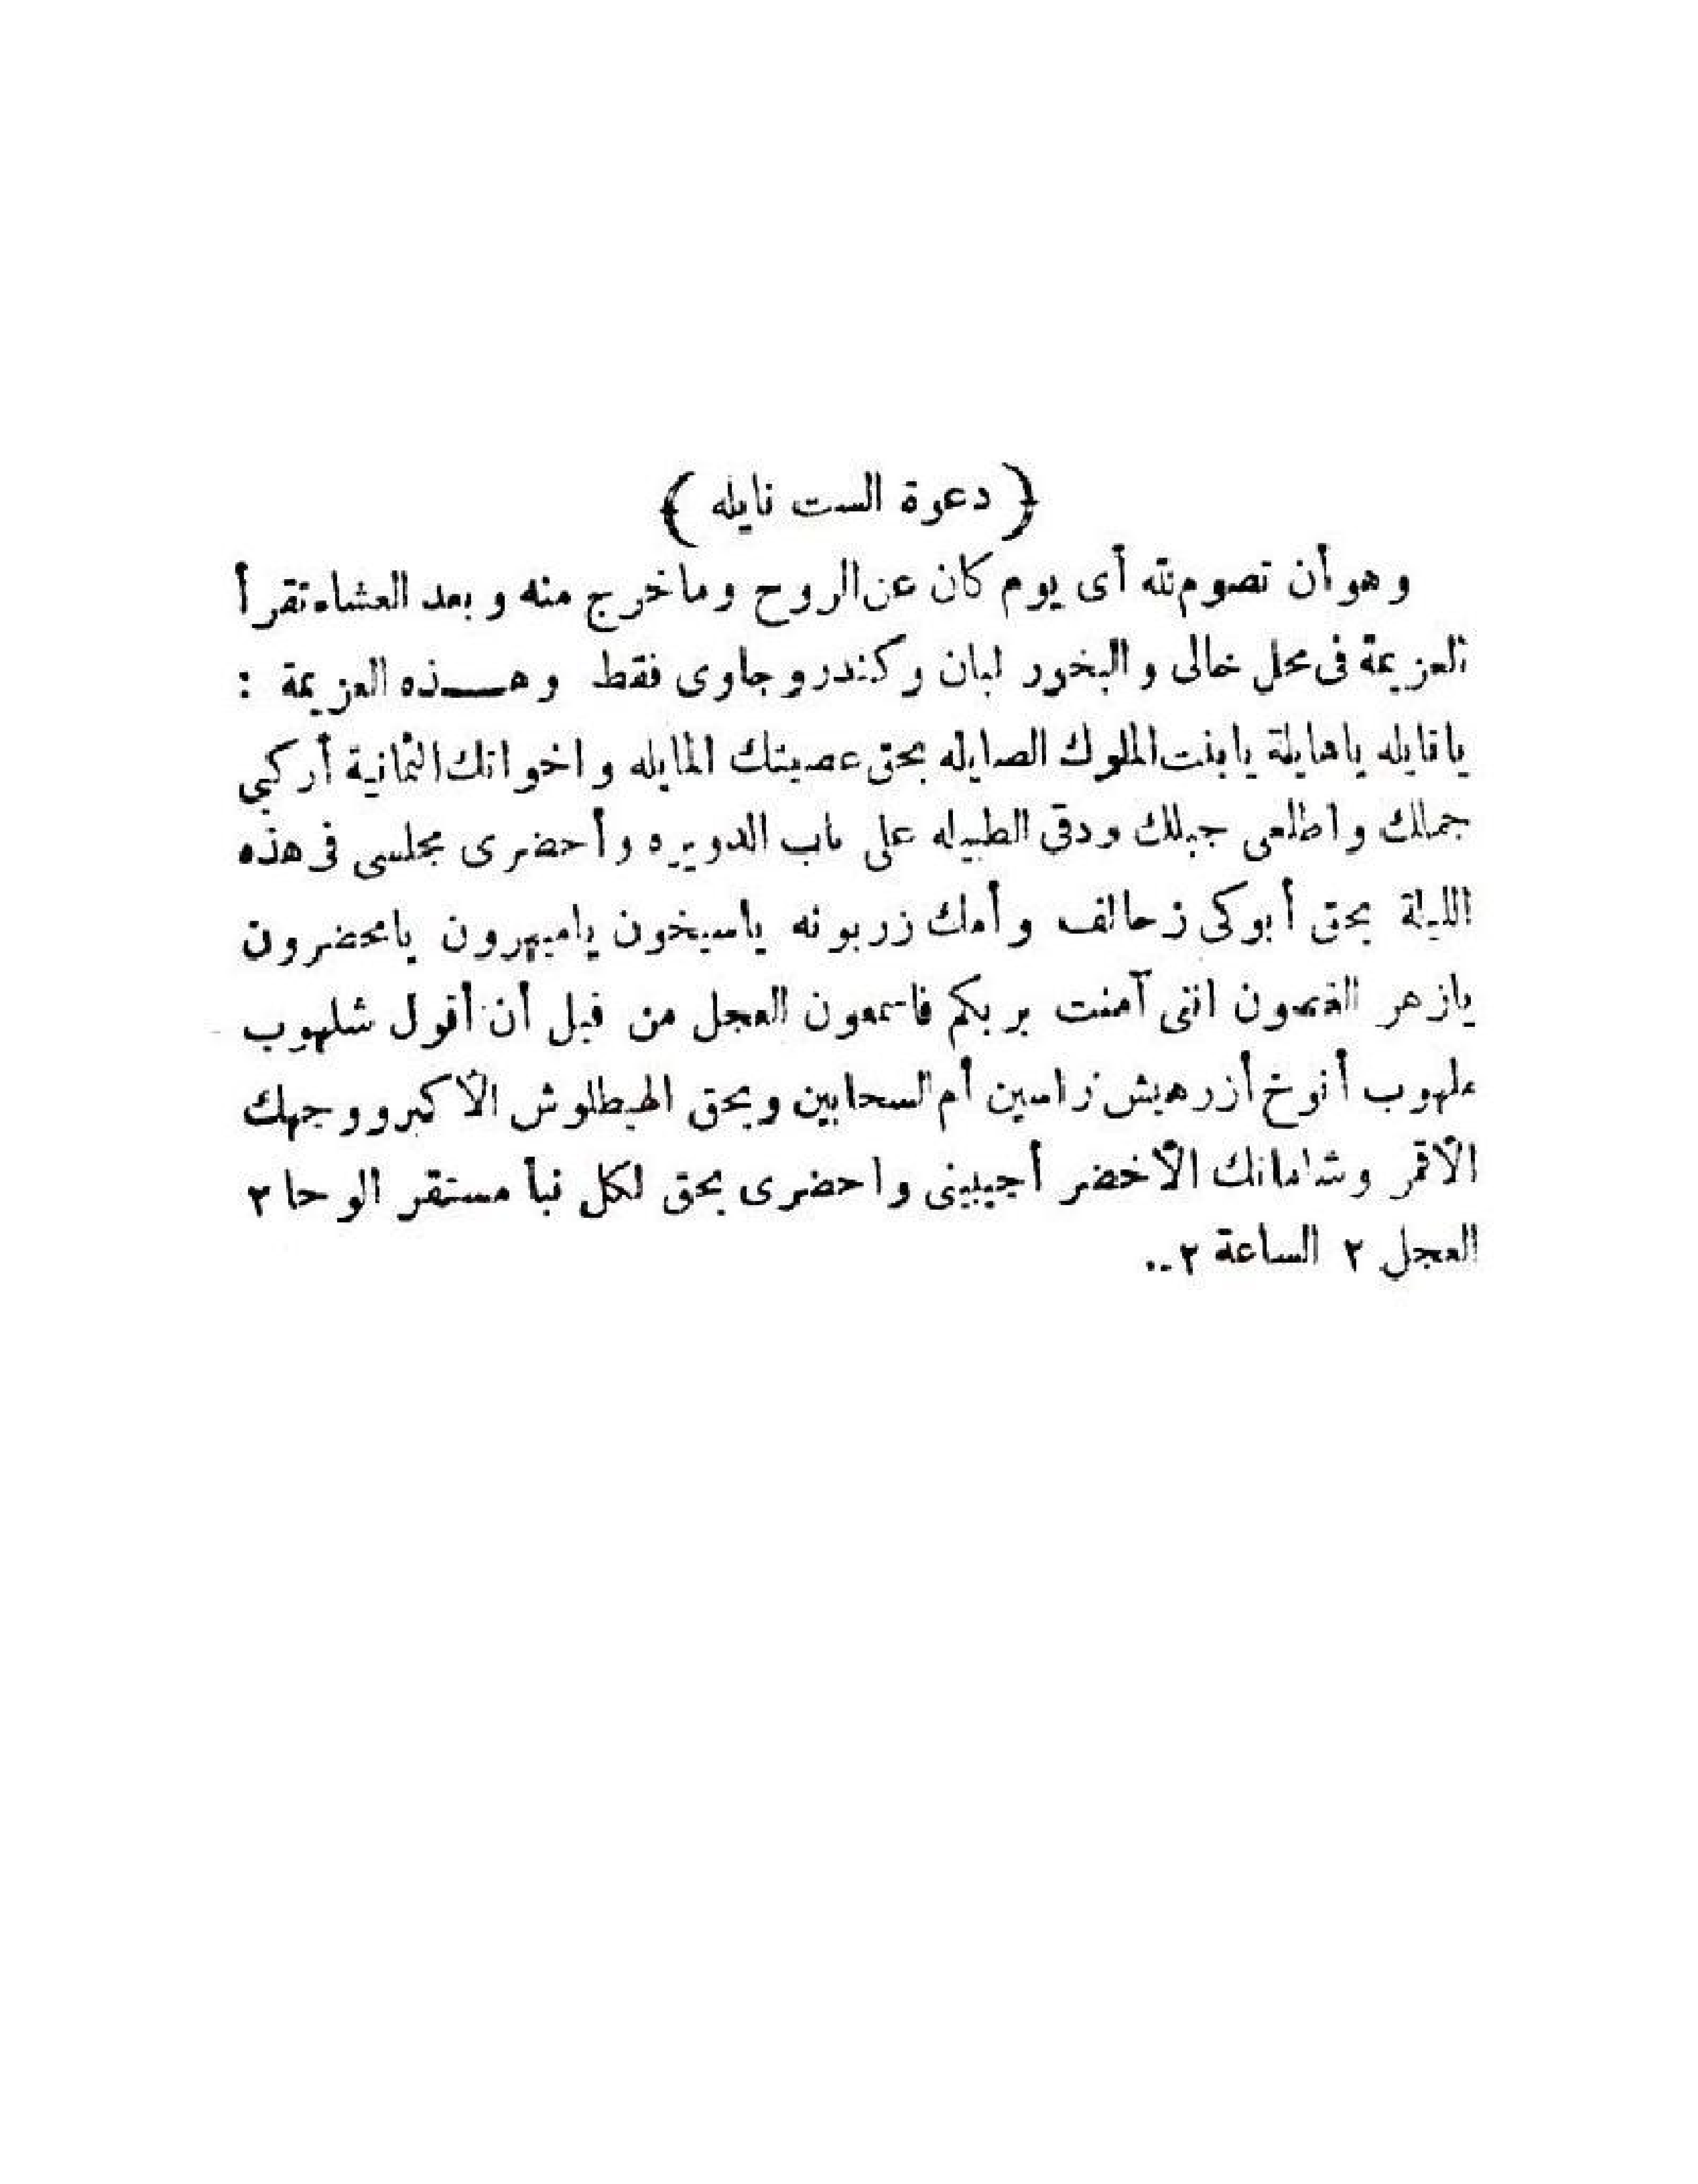 ﴿ دعوة الست نايله ﴾
وهو أن تصوم لله أى يوم كان عن الروح وما خرج منه وبعد العشاء تقرأ
العزيمة فى محل خالى والبخور لبان وكندر وجاوى فقط وهـــذه العزيمة :
يا نايله يا هايلة يا بنت الملوك الصايله بحق عصبتك المايله واخواتك الثمانية أركبى
جمالك واطلعى جبلك ودقى الطبيله على باب الدويره وأحضرى مجلسى فى هذه
الليلة بحق أبوكى زحالف وأمك زربونه ياسيخون ياميهرون يامحضرون
يازهر الغمون اننى آمنت بربكم فاسمعون العجل من قبل أن أقول شلهوب
ملهوب أنوخ أزرهيش زاسين أم السحابين وبحق الهيطلوش الأكبر ووجهك
الأقمر وشاماتك الأخضر أجيبينى واحضرى بحق لكل نبأ مستقر الوحا ٢
العجل ٢ الساعة ٢..